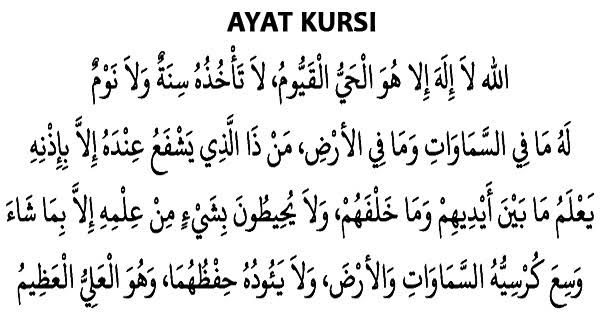 AYAT KURSI
الله لاَ إِلَهَ إِلا هُوَ الْحَيُّ الْقَيُّومُ، لاَ تَأْخُذُهُ سِنَةٌ وَلاَ نَوْمٌ
لَهُ مَا فِي السَّمَاوَاتِ وَمَا فِي الأَرْضِ، مَنْ ذَا الَّذِي يَشْفَعُ عِنْدَهُ إِلاَّ بِإِذْنِهِ
يَعْلَمُ مَا بَيْنَ أَيْدِيهِمْ وَمَا خَلْفَهُمْ، وَلاَ يُحِيطُونَ بِشَيْءٍ مِنْ عِلْمِهِ إِلاَّ بِمَا شَاءَ
وَسِعَ كُرْسِيُّهُ السَّمَاوَاتِ وَالأَرْضَ، وَلاَ يَئُودُهُ حِفْظُهُمَا، وَهُوَ الْعَلِيُّ الْعَظِيمُ